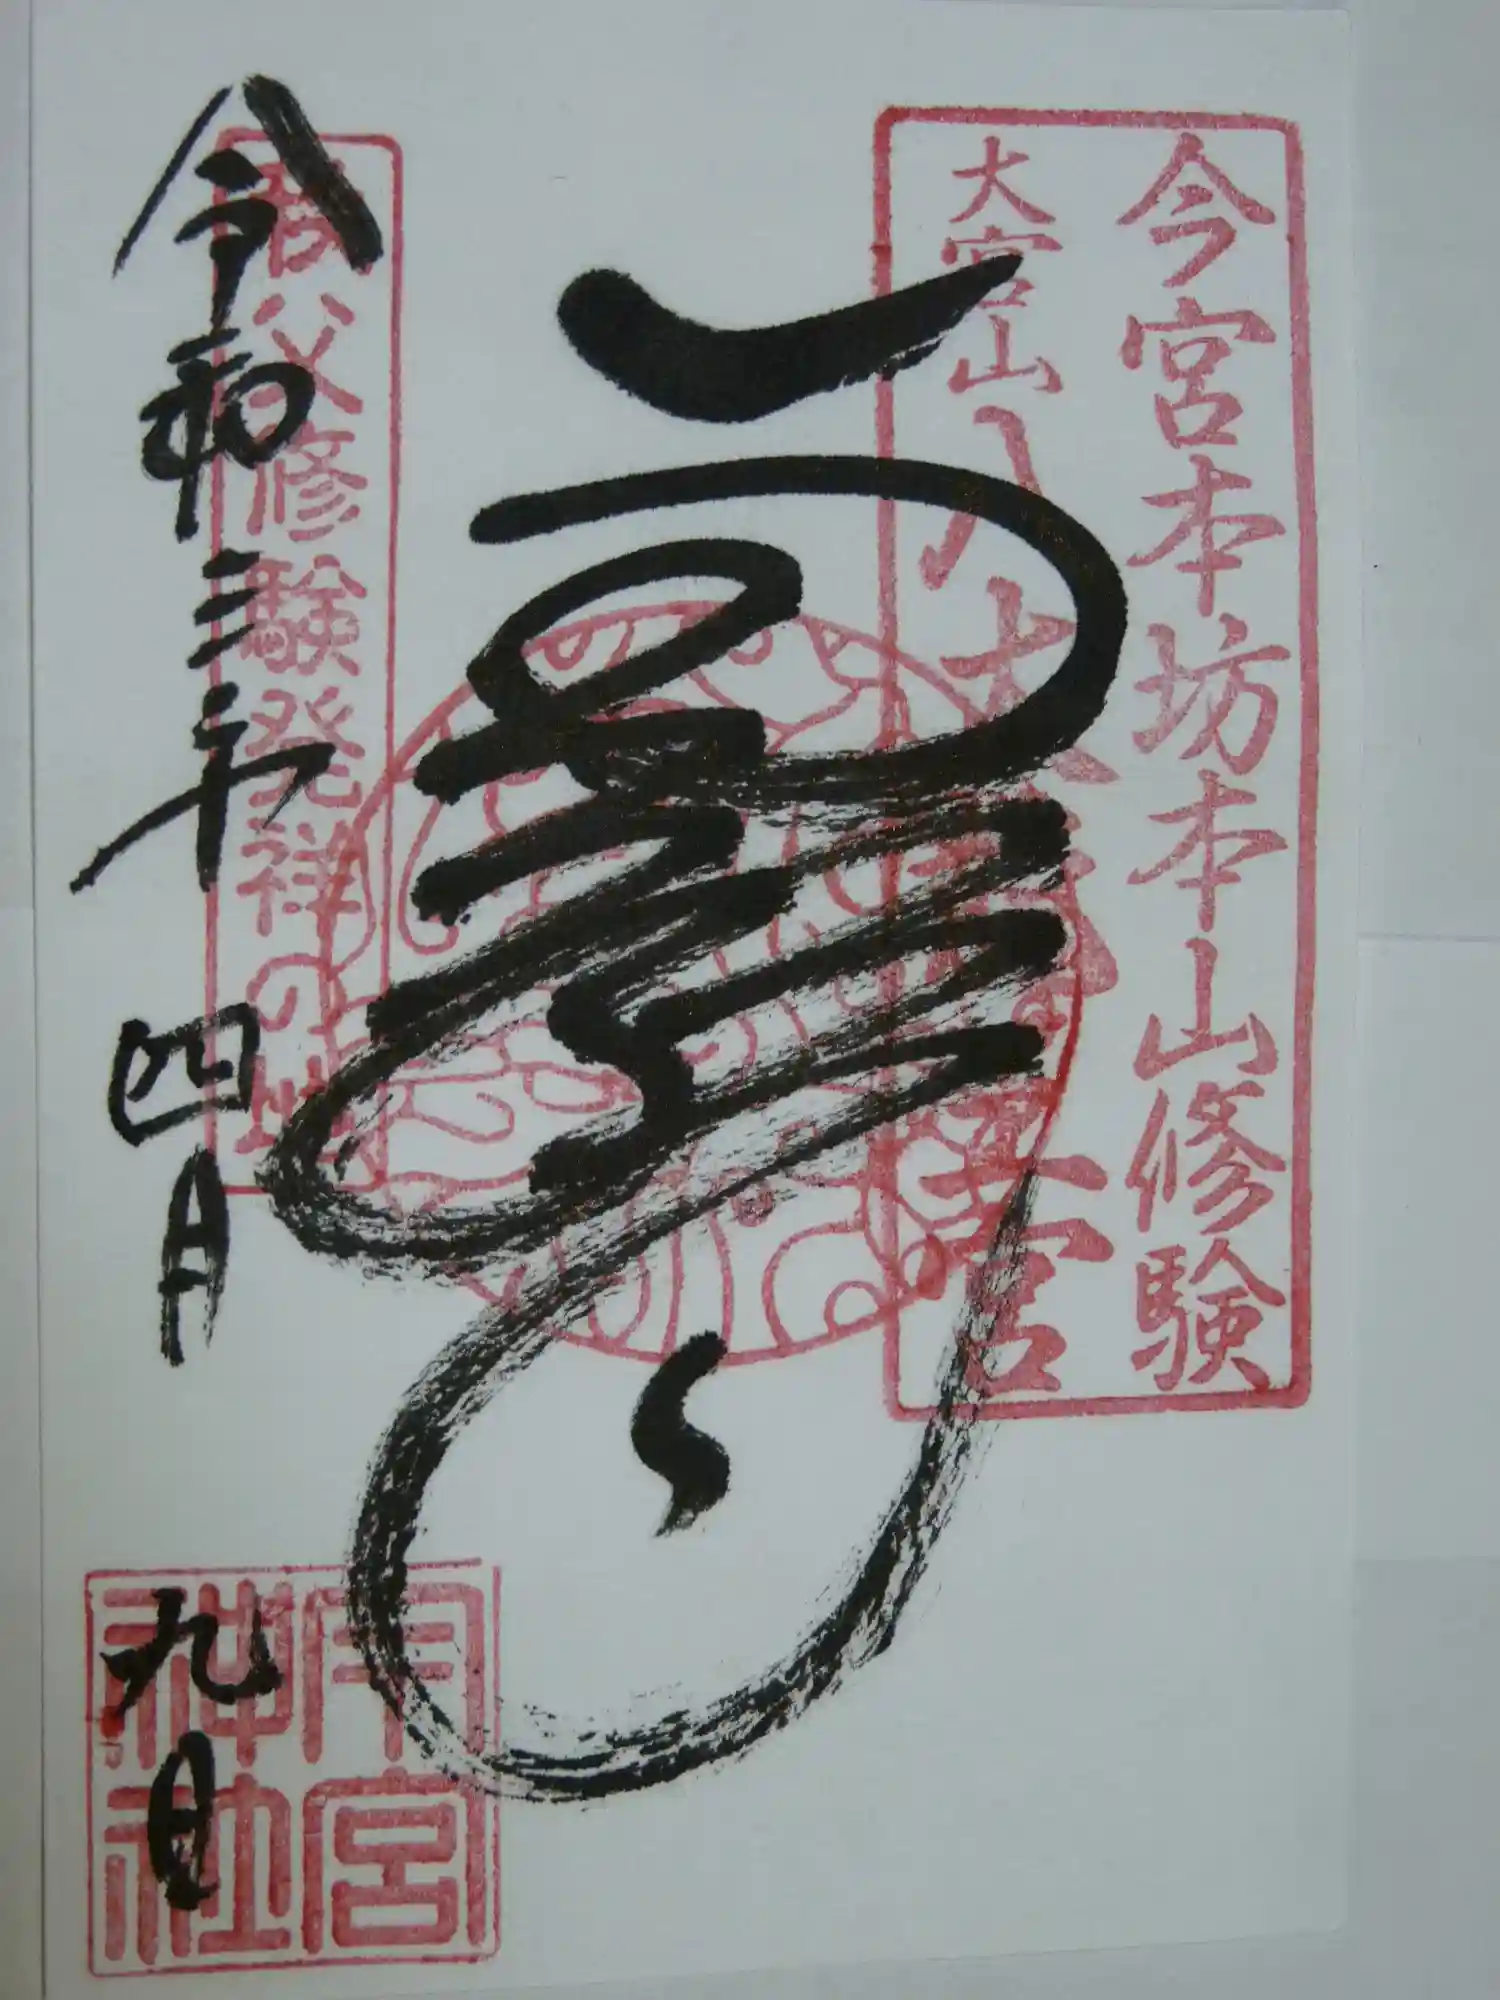 今宮本坊本山修験
大宮山八大龍王宮
秩父修験発祥の地
令和三年
四月
九日
今宮
神社